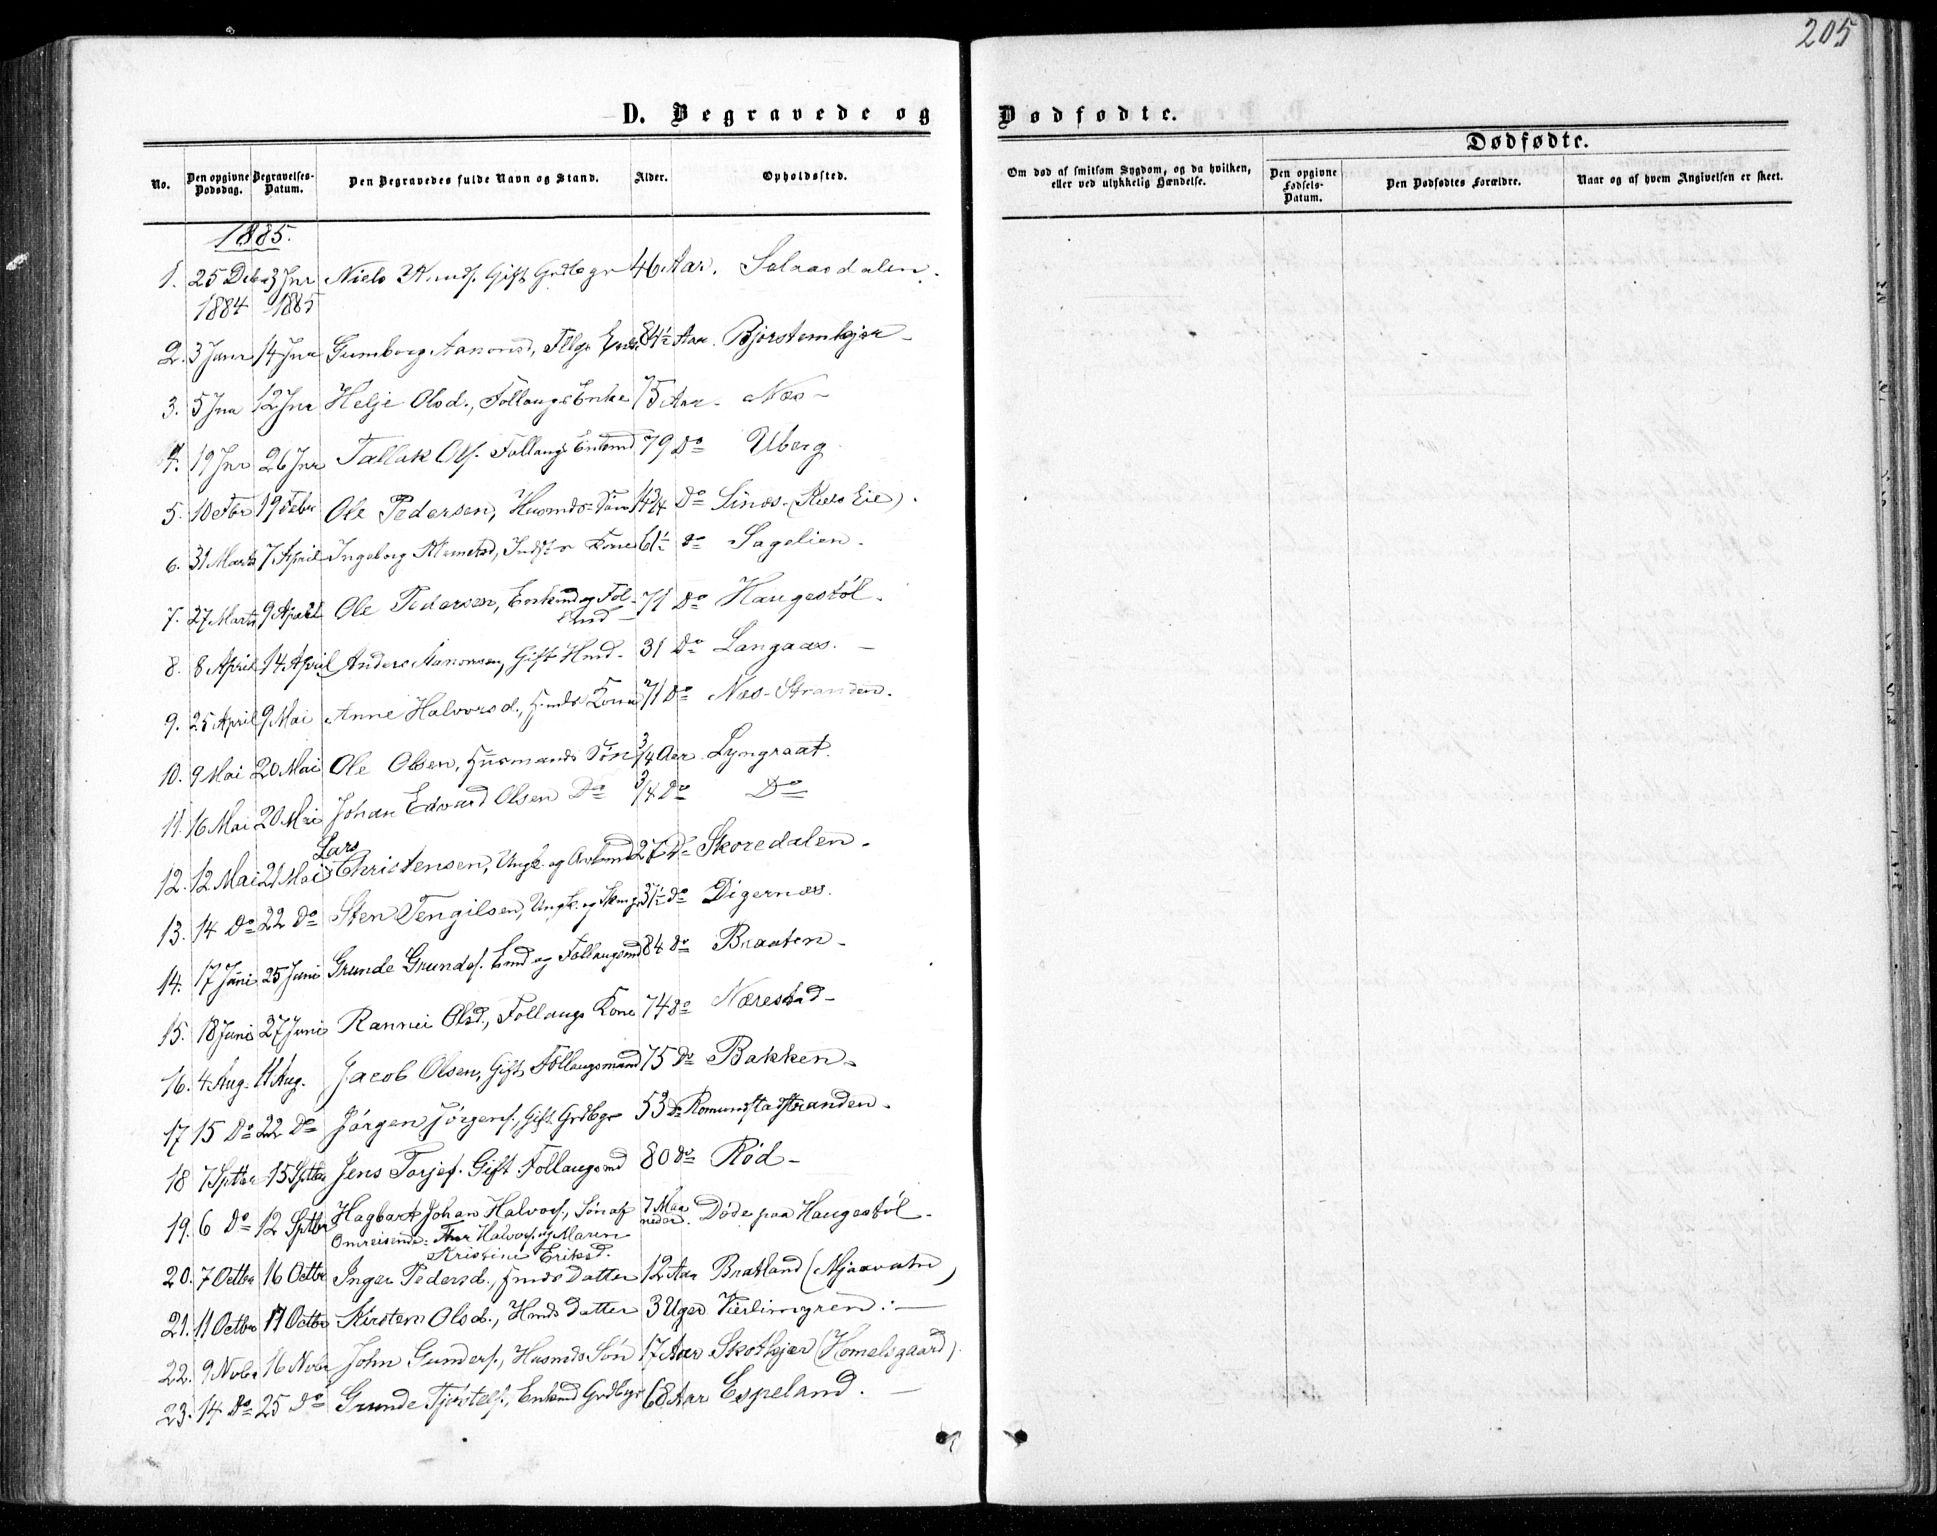 205
D. Begravede og Dødfødte.
Dødfødte.
No. Den opgivne Dødsdag. Begravelses-Datum. Den Begravedes fulde Navn og Stand. Alder. Opholdssted. Om død af smitsom Sygdom, og da hvilken, eller ved ulykkelig Hændelse. Den opgivne Fødsels-Datum. Den Dødfødtes Forældre. Naar og af hvem Angivelsen er skeet.
1885.
1. 25 Decbr 3 Jnr Niels Knuds. Gift Grdbgr 46 Aar. Solaasdalen.
1884 1885
2. 3 Janr 14 Jnr Gumborg Aanonsd, Enke 84½ Aar. Bjorstemkjær
3. 5 Jnr 12 Jnr Helje Olsd., Follaugs Enke 75 Aar Næs
4. 19 Jnr 26 Jnr Tallak Ols. Follaugs Enkemd 79 Do Uberg
5. 10 Fbr 19 Febr Ole Pedersen, Husmds Søn 14¾ Do Sines (Eie).
6. 31 Marts 7 April Ingeborg Kone 61½ do Sagelien.
7. 27 Marts 9 April Ole Pedersen, Enkemd og Fol- 71 Do Haugestøl.
8. 8 April 14 April Anders Aanonsen, Gift Hmd. 31 Do Langaas.
9. 25 April 9 Mai Anne Halvorsd., Hmds Kone 71 Do Næs-Stranden.
10. 9 Mai 20 Mai Ole Olsen, Husmands Søn ¾ Aar Lyngraat.
11. 16 Mai 20 Mai Johan Edvard Olsen Do ¾ Do Do
Lars
12. 12 Mai 21 Mai Christensen, Ungk. og 27 Do Skoredalen.
13. 14 Do 22 Do Sten Tengilsen, Ungk. og 31½ do Digernæs.
14. 17 Juni 25 Juni Grunde Grundes. Emd og Follaugsmd 84 do Braaten
15. 18 Juni 27 Juni Rannei Olsd., Follaugs Kone 74 do Nærestad
16. 4 Aug. 11 Aug. Jacob Olsen, Gift Follaugsmand 75 Do Bakken
17 15 Do 22 Do Jørgen Jørgens., Gift Grdbgr 53 Do Romundstadstranden
18 7 Sptbr 15 Sptbr Jens Torjes. Gift Follaugsmd 80 do Rød
19. 6 Do 12 Sptbr Hagbart Johan Halvors., Søn af 7 Maaneder. Døde paa Haugestøl
Omreisende: Halvors. og Maren
Kristine Eriksd.
20. 7 Octbr 16 Octbr Inger Pedersd., Hmds Datter 12 Aar Bratland (Mjaavatn)
21. 11 Octbr 17 Octbr Kirsten Olsd., Hmds Datter 3 Uger Vierlimyren.
22. 9 Novbr 16 Novbr John Gunders., Husmds Søn 17 Aar Skotkjær (Homelsgaard).
23. 14 Do 25 Do Grunde Tjøstels., Enkemd Grdbgr 68 Aar Espeland.